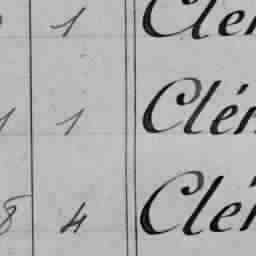 1 Clé
1 1 Clé
8 4 Clé